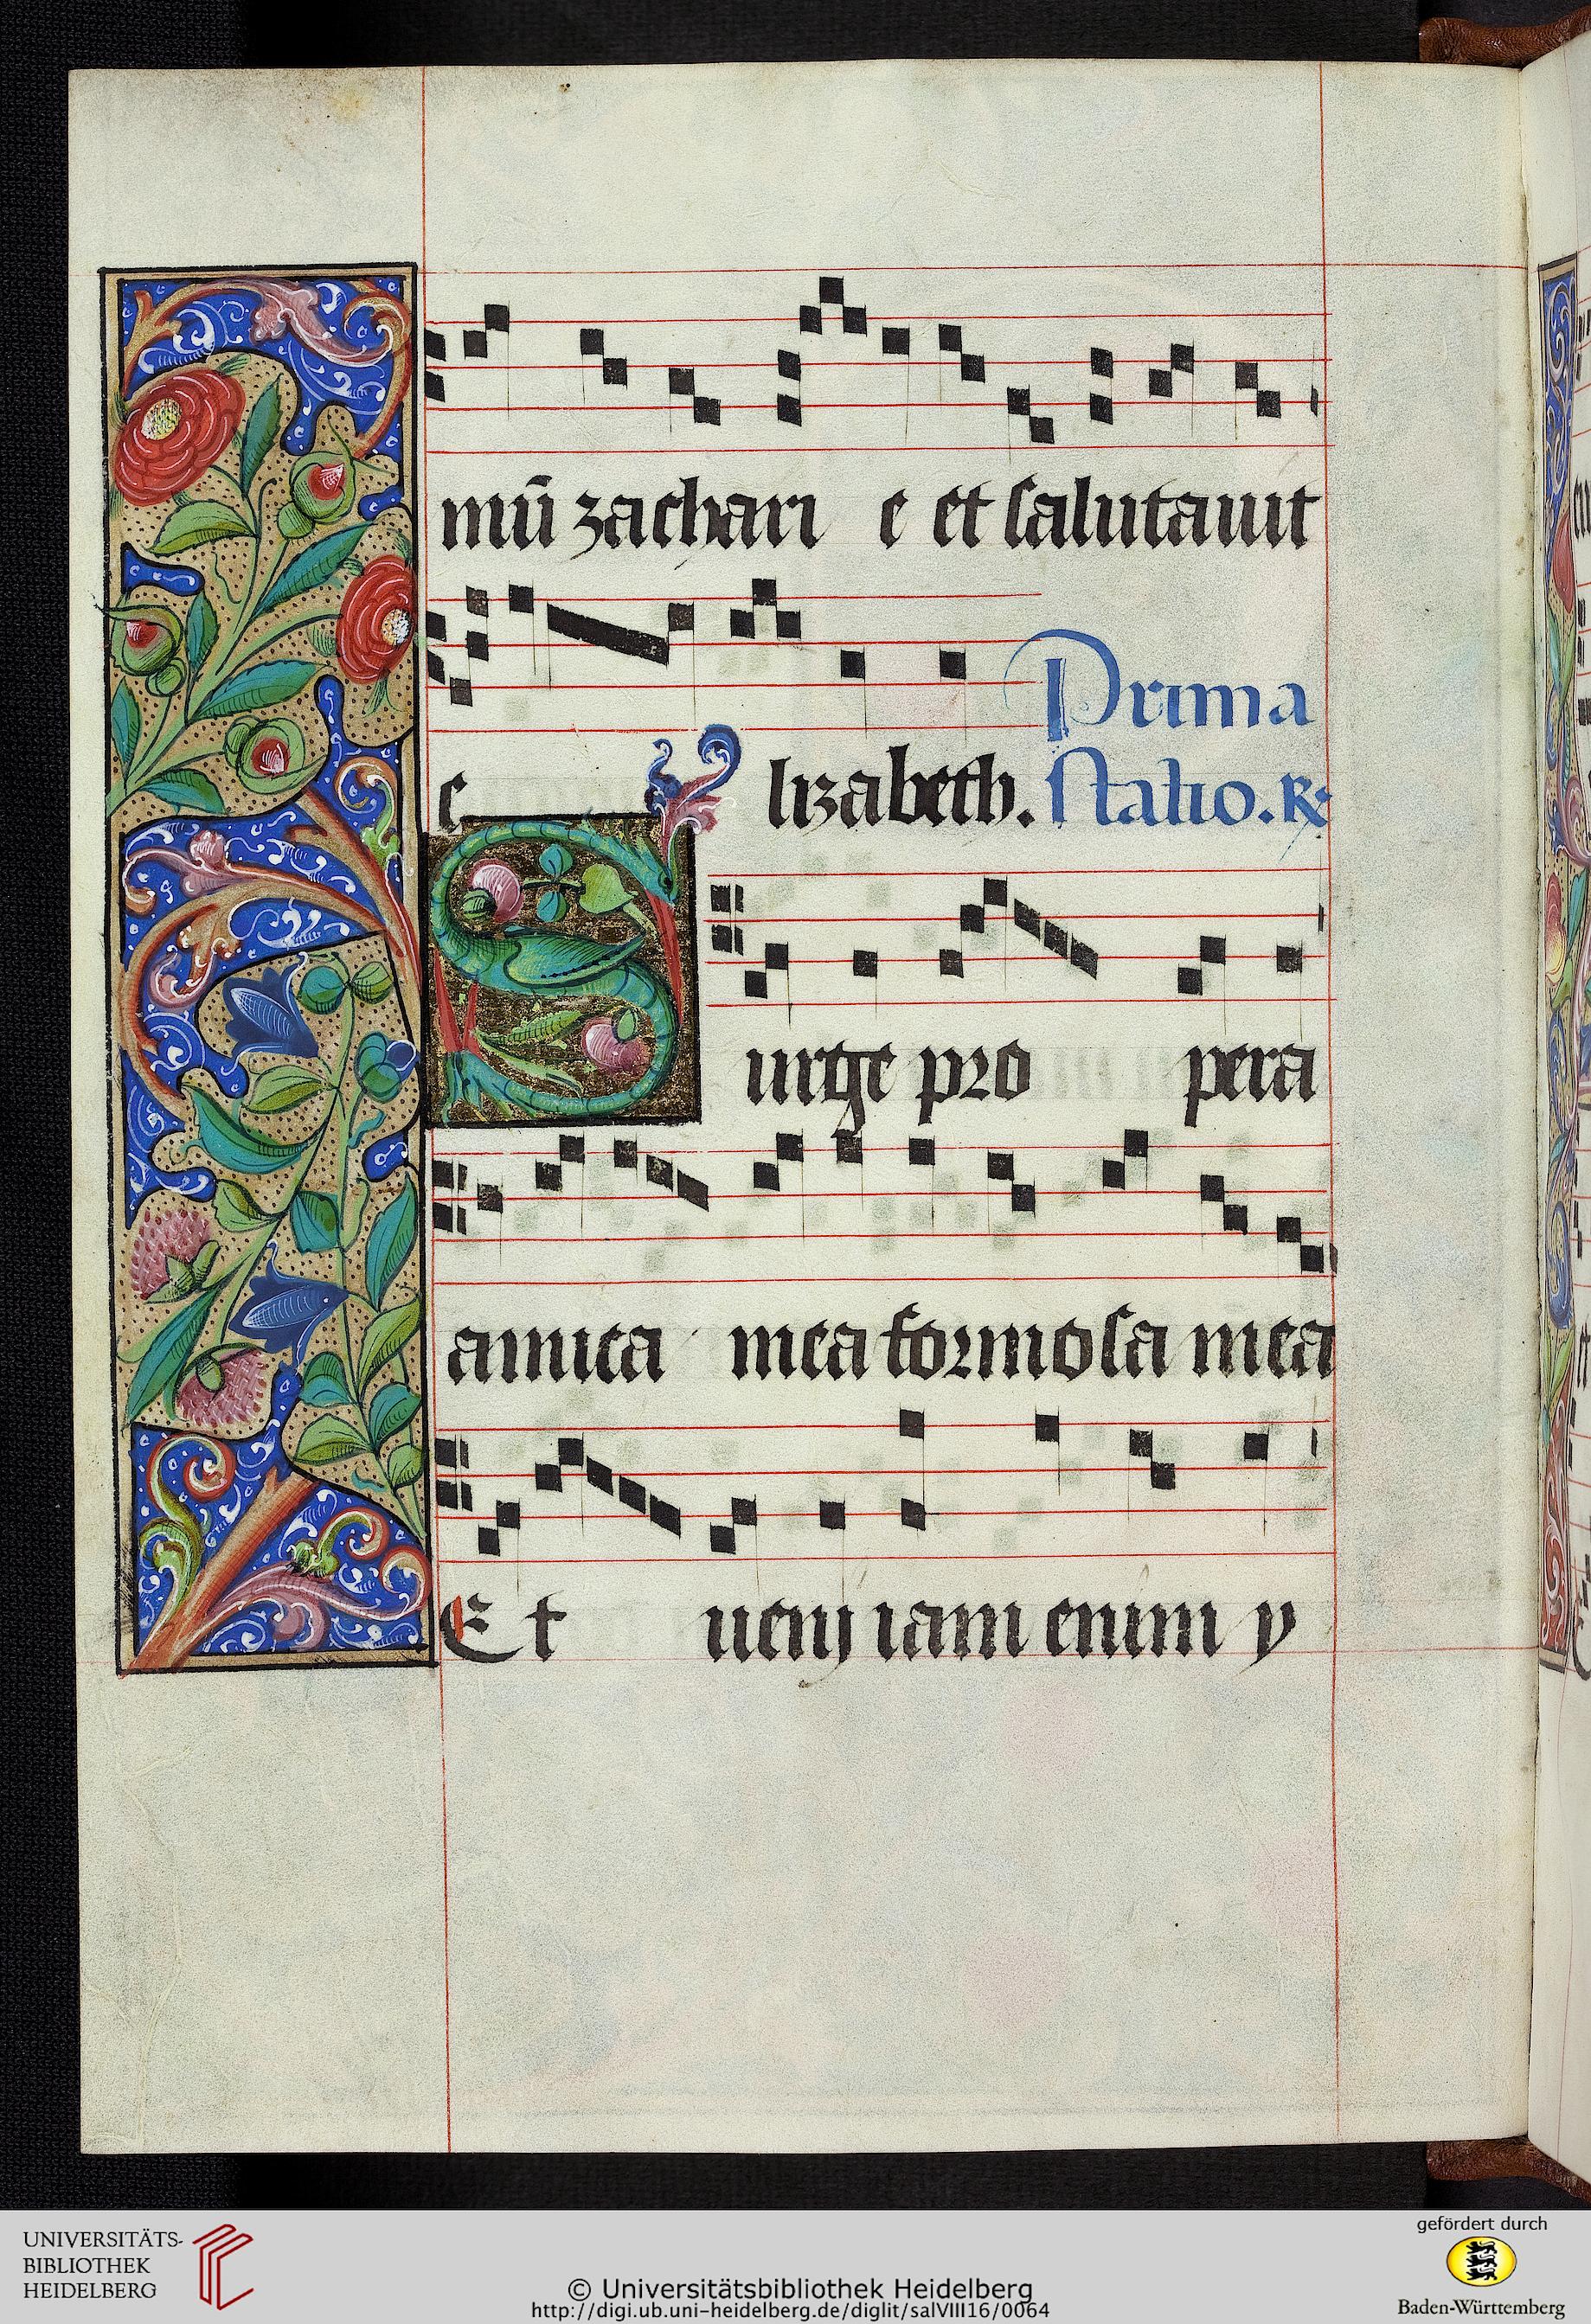 mū zachari e et salutauit
e lizabeth. Prima
statio. R:
Surge pro pera
amica mea formosa mea
Et ueny iam enim y
UNIVERSITÄTS-
BIBLIOTHEK
HEIDELBERG
© Universitätsbibliothek Heidelberg
http://digi.ub.uni-heidelberg.de/diglit/salVIII16/0064
gefördert durch
Baden-Württemberg